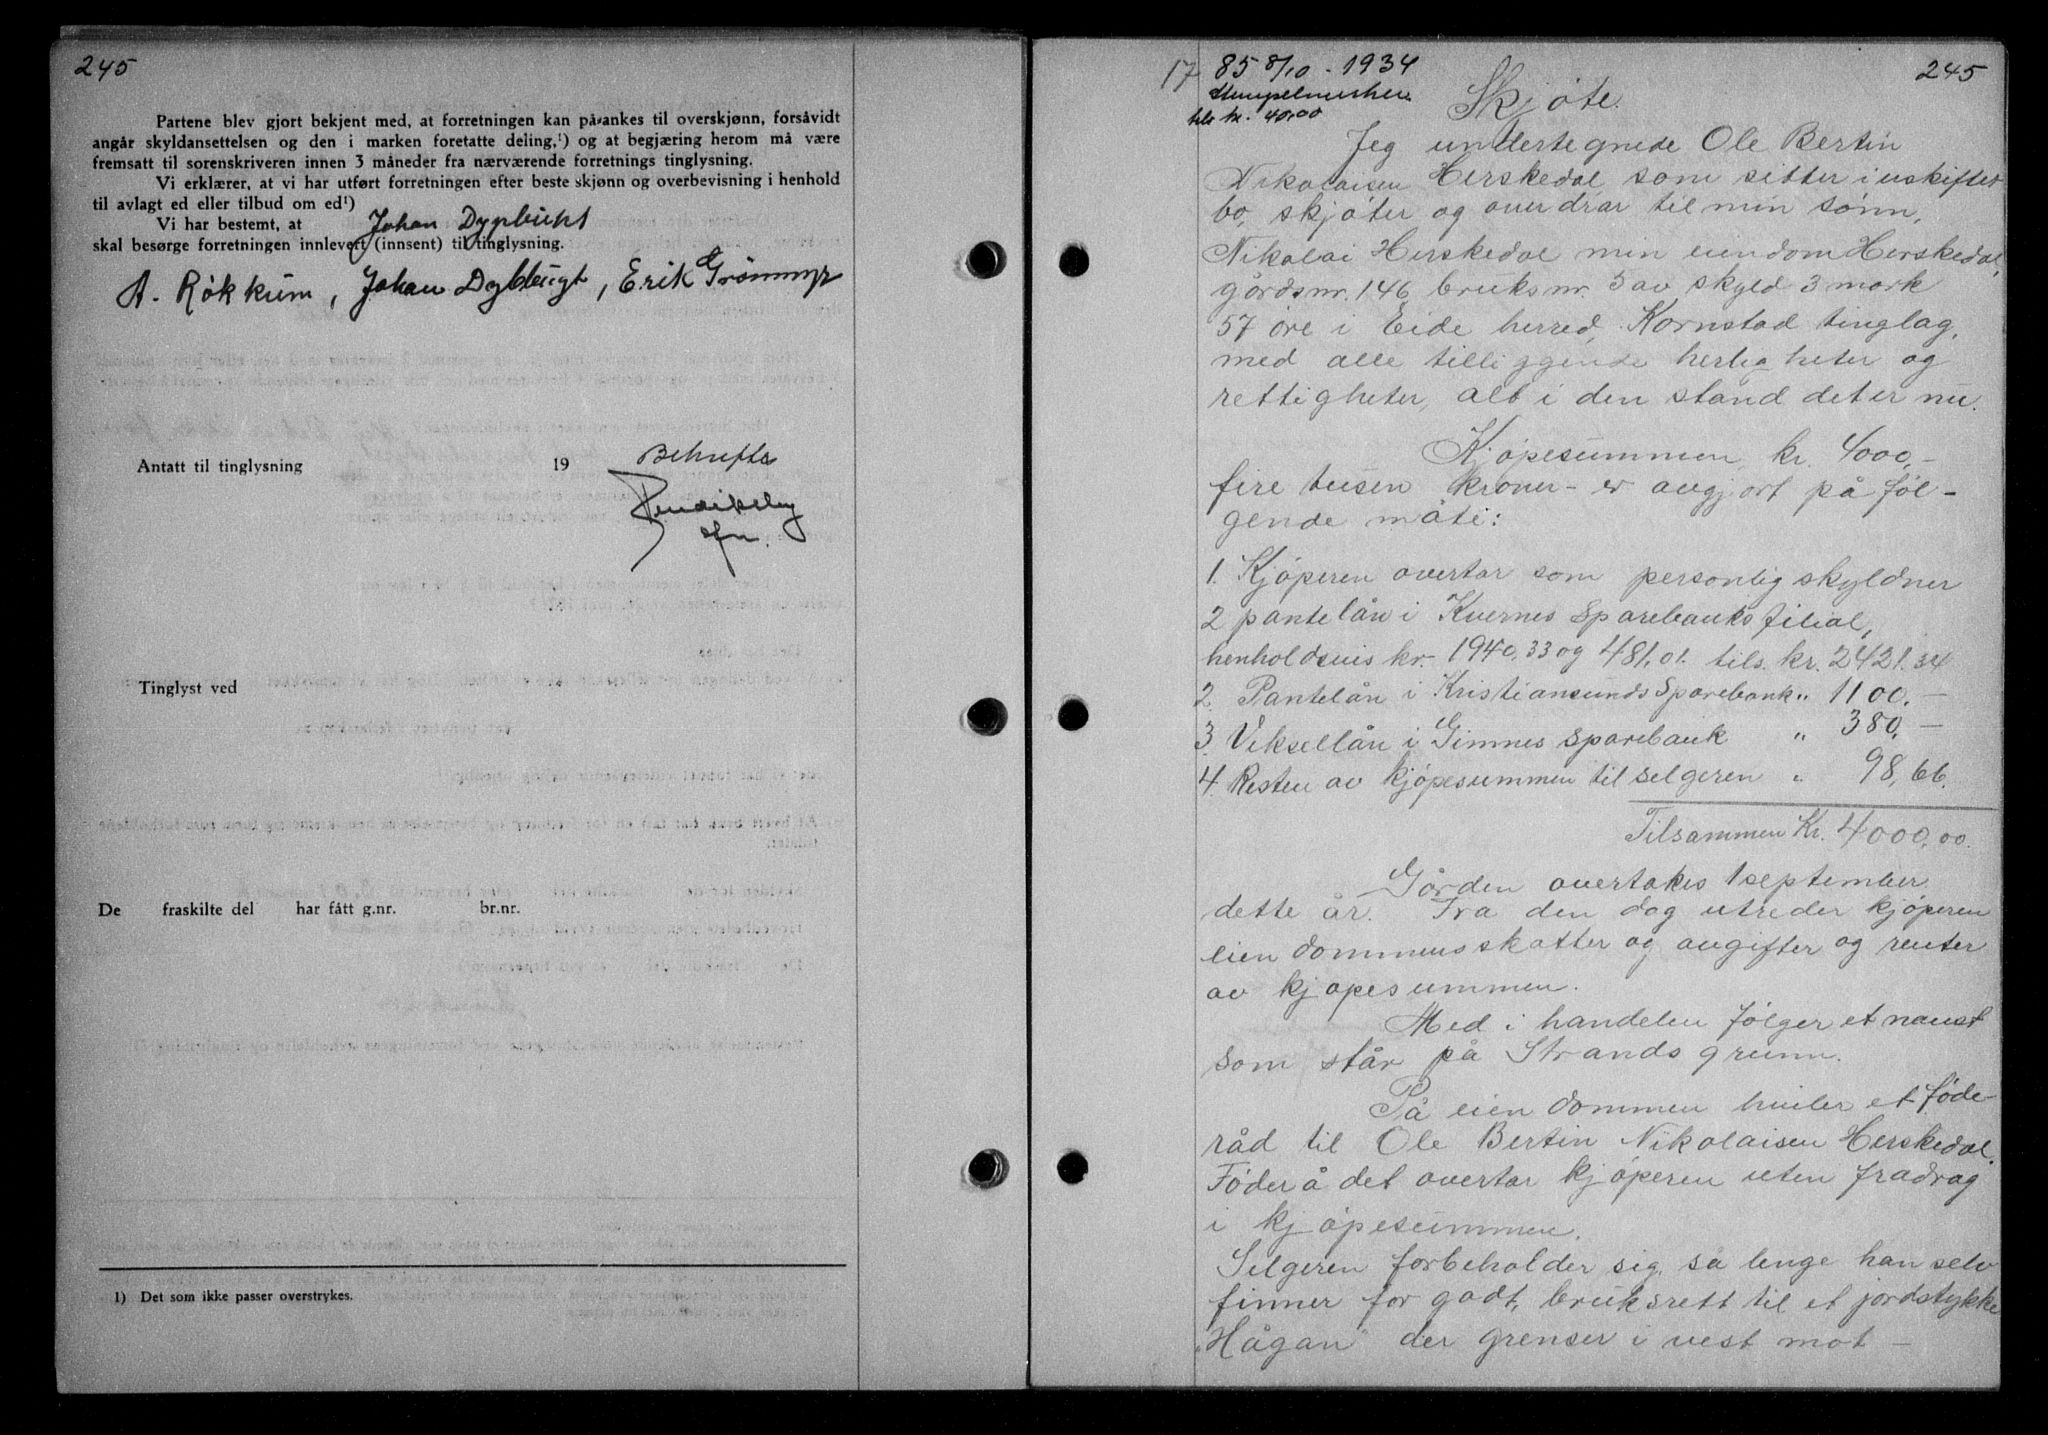 245
Partene blev gjort bekjent med, at forretningen kan påankes til overskjønn, forsåvidt
angår skyldansettelsen og den i marken foretatte deling,¹) og at begjæring herom må være
fremsatt til sorenskriveren innen 3 måneder fra nærværende forretnings tinglysning.
Vi erklærer, at vi har utført forretningen efter beste skjønn og overbevisning i henhold
til avlagt ed eller tilbud om ed¹)
Vi har bestemt, at Johan Dypbukt
skal besørge forretningen innlevert (innsent) til tinglysning.
A. Røkkum, Johan Dybbugt, Erik Grømmyr
Antatt til tinglysning 19
Bekreftes
Sfu.
Tinglyst ved
De fraskilte del har fått g.nr. br.nr.
1) Det som ikke passer overstrykes.
17 85 8/10 - 1934 245
Stempelmerker
kr. 40,00
Skjøte.
Jeg undertegnede Ole Bertin
Nikolaisen Herskedal som sitter i uskiftet
bo, skjøter og overdrar til min sønn,
Nikolai Herskedal min eiendom Herskedal,
gårdsnr. 146 bruksnr. 5 av skyld 3 mark
57 øre i Eide herred, Kornstad tinglag,
med alle tilliggende herligheter og
rettigheter, alt i den stand det er nu.
Kjøpesummen kr. 4000,-
fire tusen kroner - er avgjort på føl-
gende måte:
1. Kjøperen overtar som personlig skyldner
2 pantelån i Kvernes Sparebanks filial,
henholdsvis kr. 1940,33 og 481,01. tils. kr. 2421,34
2. Pantelån i Kristiansunds Sparebank " 1100,-
3. Veksellån i Gimnes Sparebank " 380,-
4. Resten av kjøpesummen til selgeren " 98,66.
Tilsammen Kr. 4000,00.
Gården overtakes 1 september
dette år. Fra den dag utreder kjøperen
eiendommens skatter og avgifter og renter
av kjøpesummen.
Med i handelen følger et naust
som står på Strands grunn.
På eiendommen hviler et føde-
råd til Ole Bertin Nikolaisen Herskedal.
Føderådet overtar kjøperen uten fradrag
i kjøpesummen.
Selgeren forbeholder sig, så lenge han selv
finner for godt, bruksrett til et jordstykke
"Hågan" der grenser i vest mot -